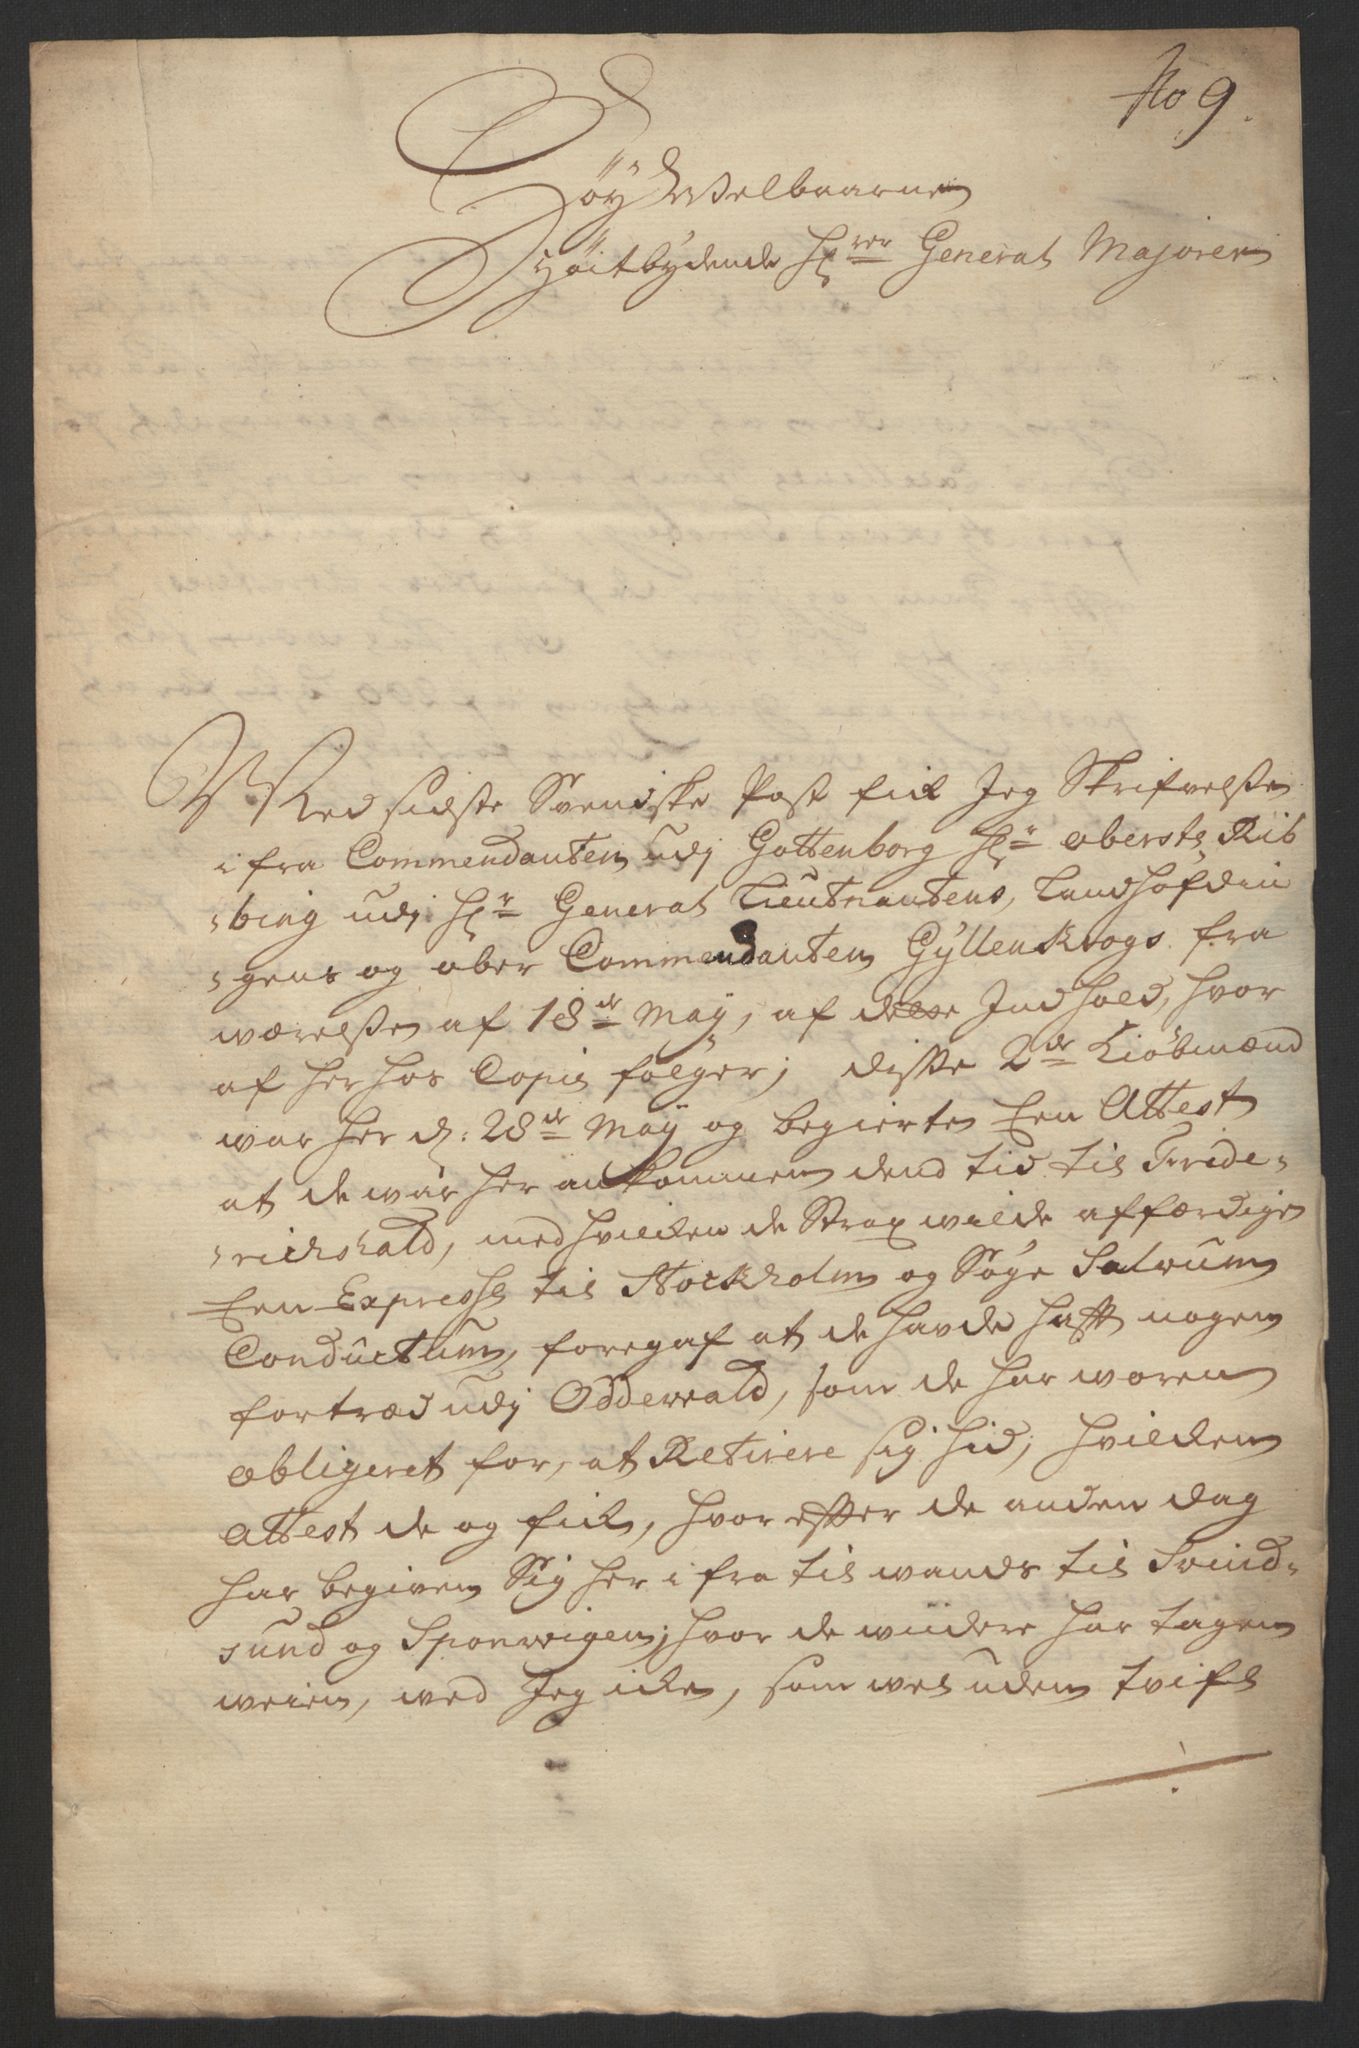 No 9.
Høy Welbaarne
Høitbydende Hr: General Majoren
Med sidste Svendske Post fick Jeg Skrifvelse
i fra Commendanten udj Gottenborg Hr: oberste Rib
-bing udj Hr: General Lieutnantens, Landhøfdin
-gens og ober Commendanten Gyllenkrogs fra
wærelse af 18de Maÿ, af dese Indhold, hvor
af her hos Copie følger; disse 2de Kiøbmænd
war her d: 28de Maÿ og begierte Een Attest
at de war her ankommen dend tid til Fride-
-richshald, med hvilken de Strax wilde affærdige
Een Expresse til Stockholm og Søge Salvum
Conductum, foregaf at de hafde haft nogen
fortræd udj Oddewald, som de har woren
obligeret for, at Retirere sig hid; hvilken
Attest de og fick, hvor effter de anden dag
har begiven Sig her i fra til wands til Svind-
sund og Sponwigen; hvor de widere har tagen
weien, wed Jeg icke, som wel uden tvifl